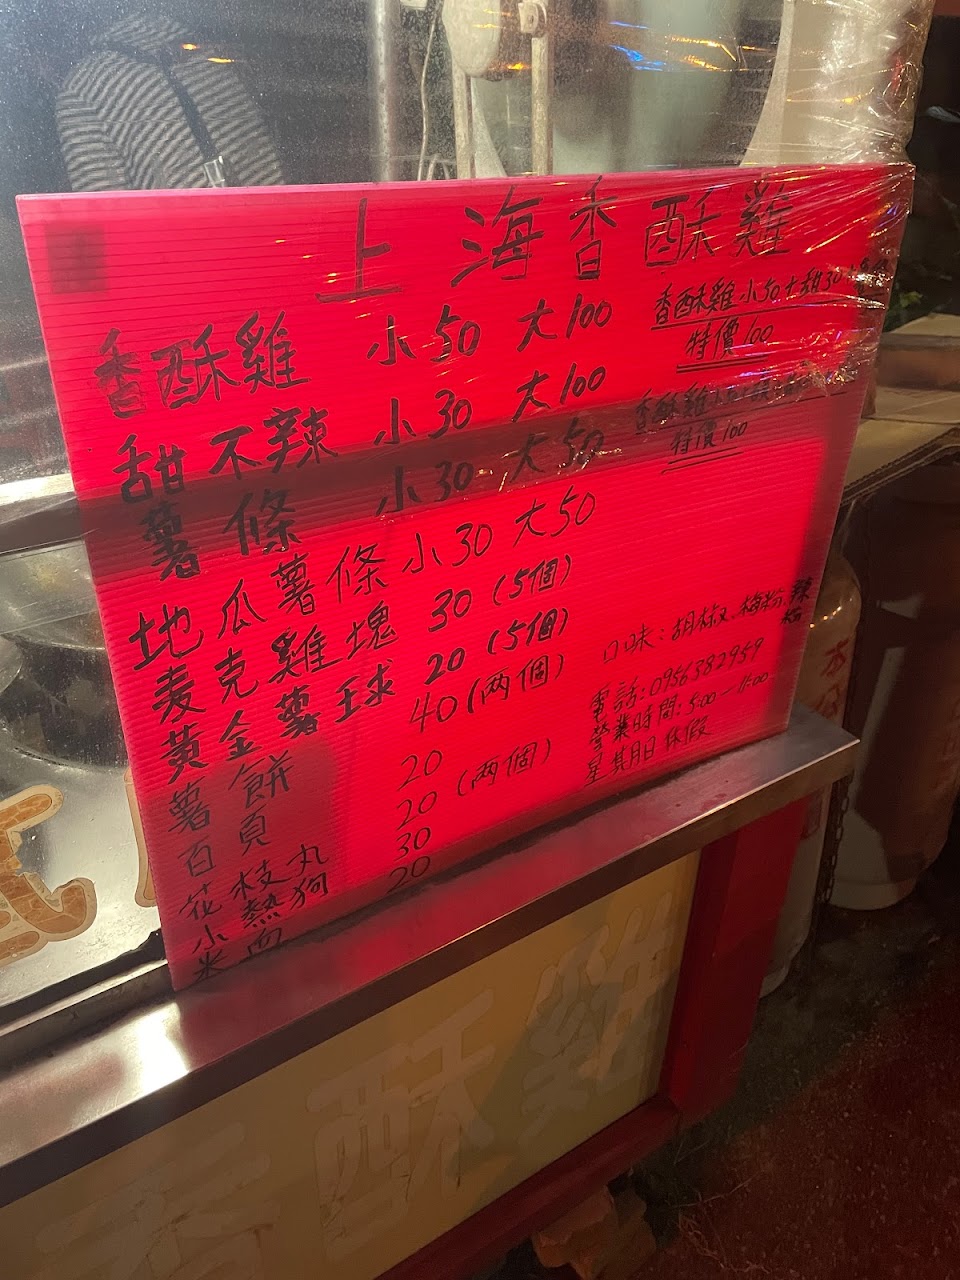 上海香酥雞
香酥雞 小50 大100
甜不辣 小30 大100
薯條 小30 大50
地瓜薯條 小30 大50
麦克雞塊 30 (5個)
黃金薯球 20 (5個)
薯餅 40 (两個)
百頁 20
花枝丸 20 (两個)
小熱狗 30
米血 20
香酥雞小50大甜30
特價100
香酥雞
特價100
口味:胡椒.梅粉.辣椒
電話:0956382959
營業時間:5:00—11:00
星期日休假
香酥雞